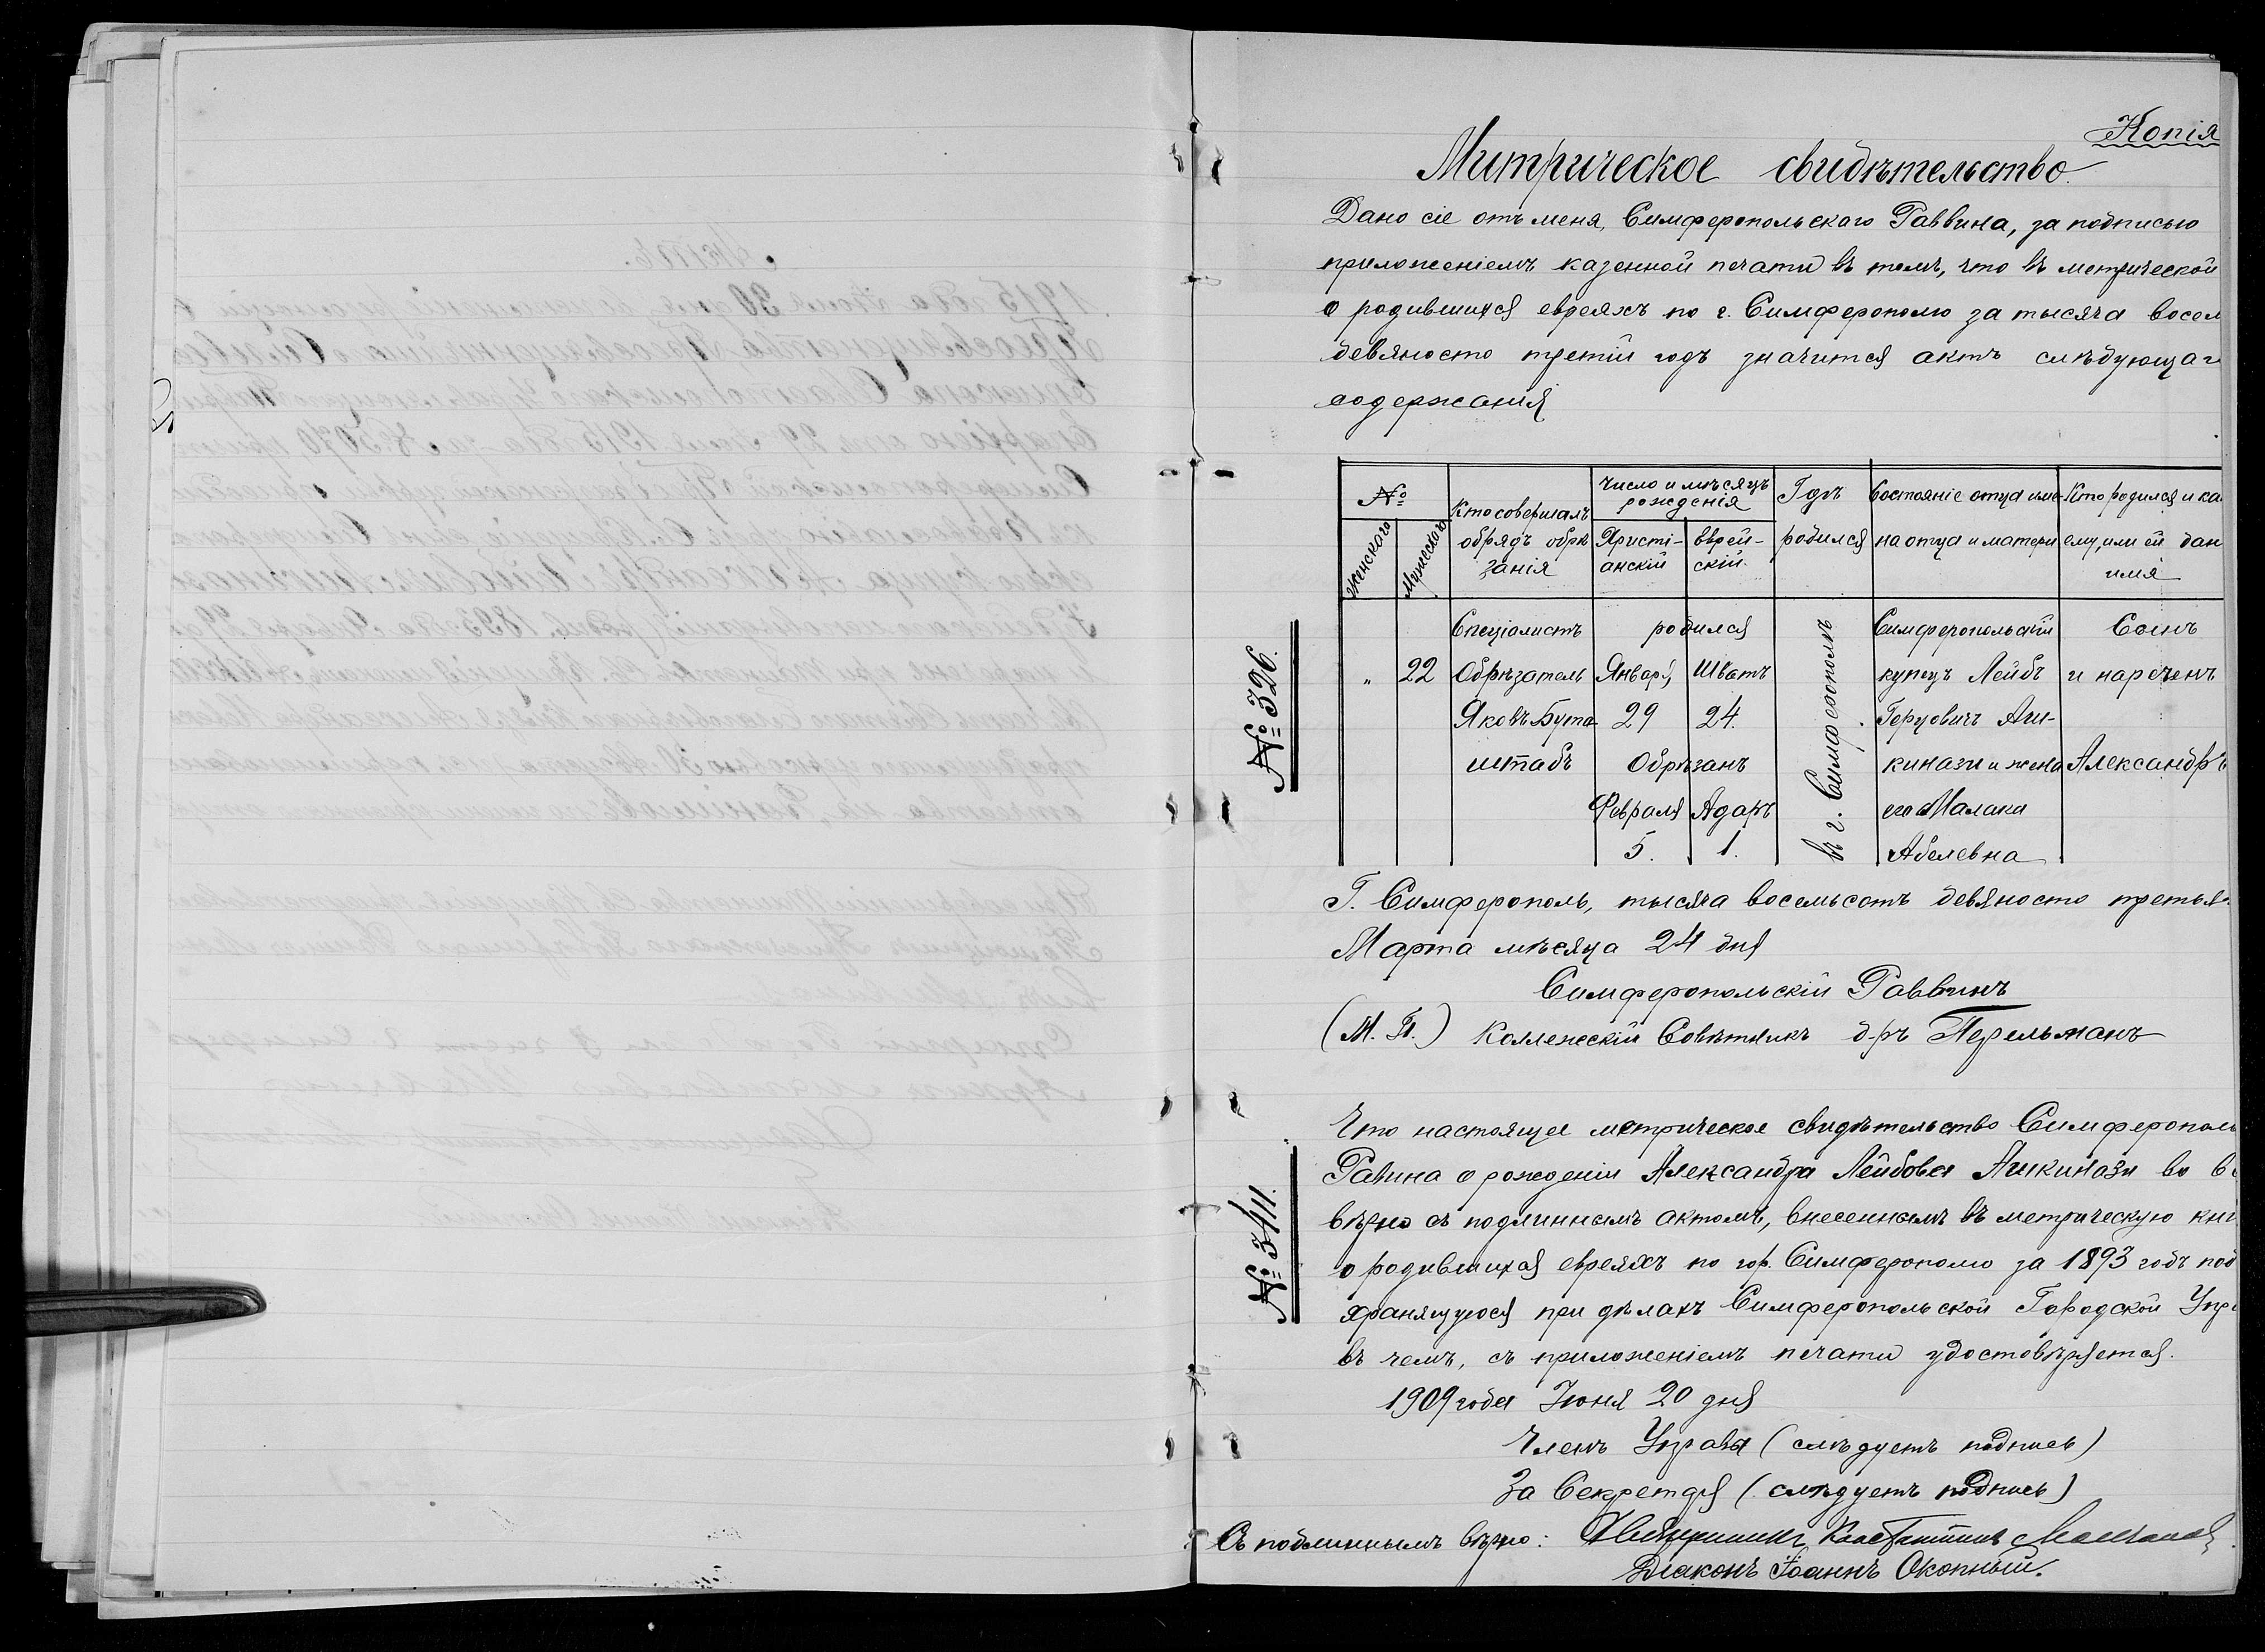 Копія
Митрическое свидѣтельство.
Дано сіе отъ меня, Симферопольскаго Раввина, за подписью
приложеніемъ казенной печати въ томъ, что въ метрической
о родившихся евреяхъ по г. Симферополю за тысяча восем
девяносто третій годъ значится актъ слѣдующаг
содержанія
№
Женскаго
Мужескаго
Кто совершалъ обрядъ обрѣзанія
Число и мѣсяцъ рожденія
Христі-
анскій
Еврей-
скій.
Гдѣ
родился
Состояніе отца име-
на отца и матери
Кто родился и ка
ему, или ей дан
имя
№ 326.
" 22
Спеціалистъ
Обрѣзатель
Яковъ Бута-
штабъ
родился
Январ. Шватъ
29 24.
Обрѣзанъ
Февраля Адаръ
5. 1.
въ г. Симферополѣ
Симферопольскій
купецъ Лейбъ
Герцовичъ Аш-
кинази и жена
его Малака
Абелевна
Сынъ
и нареченъ
Александръ
Г. Симферополь, тысяча восемьсотъ девяносто третья
Марта мѣсяца 24 дня
Симферопольскій Раввинъ
(М. П.) Коллежскій Совѣтникъ д-ръ Перельманъ
№ 3411.
Что настоящее метрическое свидѣтельство Симферополь
Равина о рожденіи Александра Лейбова Ашкинази во в
вѣрно съ подлиннымъ актомъ, внесеннымъ въ метрическую кни
о родившихся евреяхъ по гор. Симферополю за 1893 годъ под
хранящуюся при дѣлахъ Симферопольской Городской Упр
въ чемъ, съ приложеніемъ печати удостовѣряется.
1909 года Іюня 20 дня
Членъ Управы (слѣдуетъ подпись)
За Секретаря (слѣдуетъ подпись)
Съ подлиннымъ вѣрно:
Діаконъ Іоаннъ Окопный.